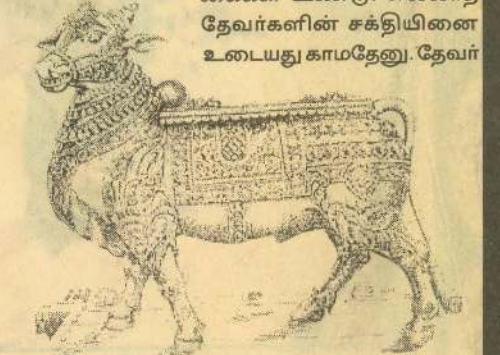 தேவர்களின் சக்தியினை
உடையது காமதேனு. தேவர்